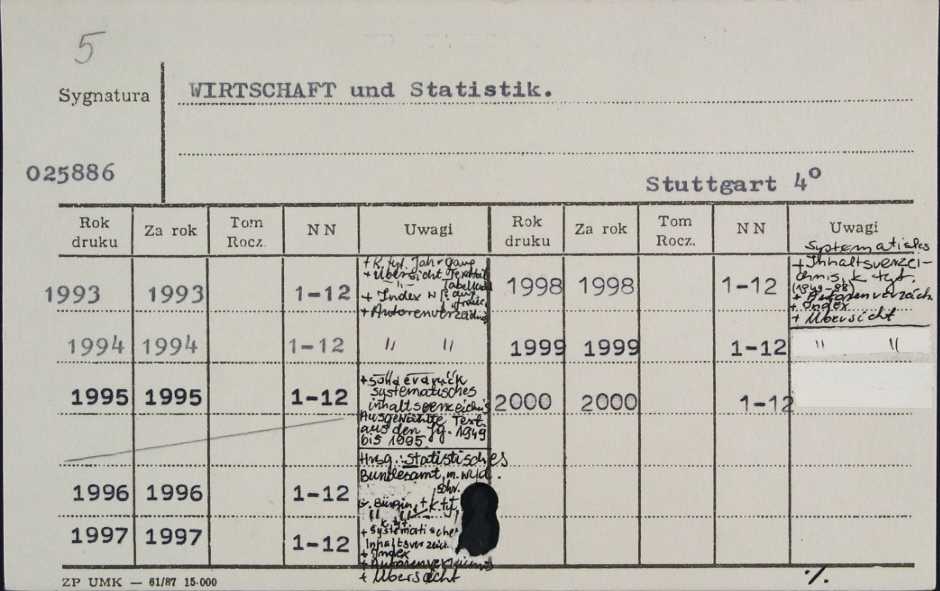 5
Sygnatura
WIRTSCHAFT und Statistik.
025886
Stuttgart 4°
Rok druku Za rok Tom Rocz. NN Uwagi Rok druku Za rok Tom Rocz. NN Uwagi
1993 1993 1-12
+ K. tyt. Jahrgang
+ Übersicht Textteil
-"- Tabellen
+ Index
+ Autorenverzeichnis
1998 1998 1-12
Systematisches
+ Inhaltsverzei-
chnis, k. tyt.
+ Autorenverzeich
+ Index
+ Übersicht
1994 1994 1-12 " "
1999 1999 1-12 " "
1995 1995 1-12
+ Sonderdruck
systematisches
inhaltsverzeichnis
Ausgewählte Text
aus den Jg. 1949
bis 1995
2000 2000 1-12
Hrsg.: Statistisches
Bundesamt,
1996 1996 1-12
+ k. tyt
" "
k. tyt.
1997 1997 1-12
+ Systematisches
Inhaltsverzeich
+ Index
+ Autorenverzeichnis
+ Übersicht
ZP UMK — 61/87 15.000
./.